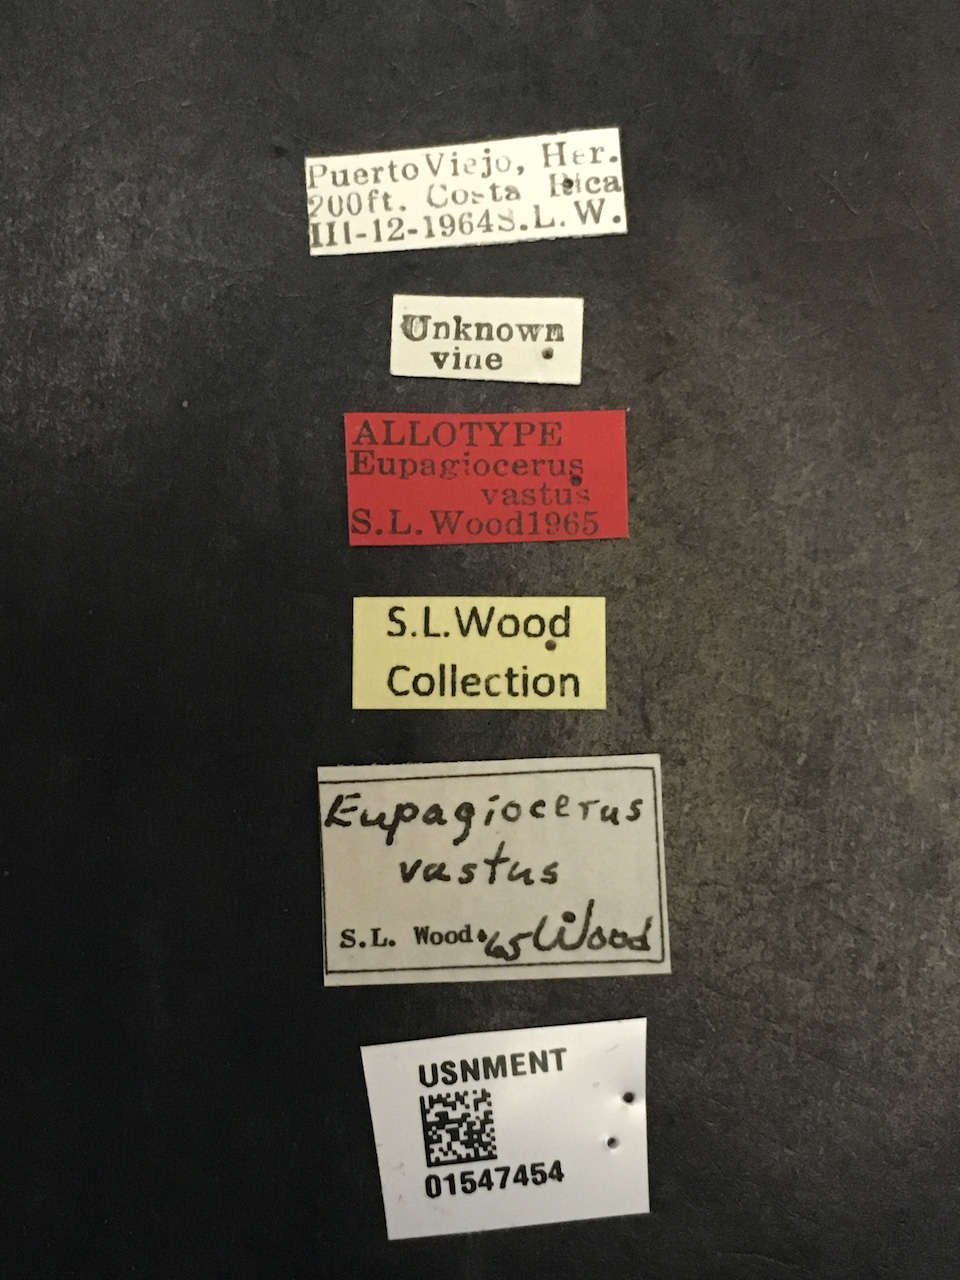 Puerto Viejo, Her.
200ft. Costa Rica
III-12-1964 S.L.W.
Unknown
vine
ALLOTYPE
Eupagiocerus
vastus
S.L. Wood 1965
S.L.Wood
Collection
Eupagiocerus
vastus
S.L. Wood '65 Wood
USNMENT
01547454